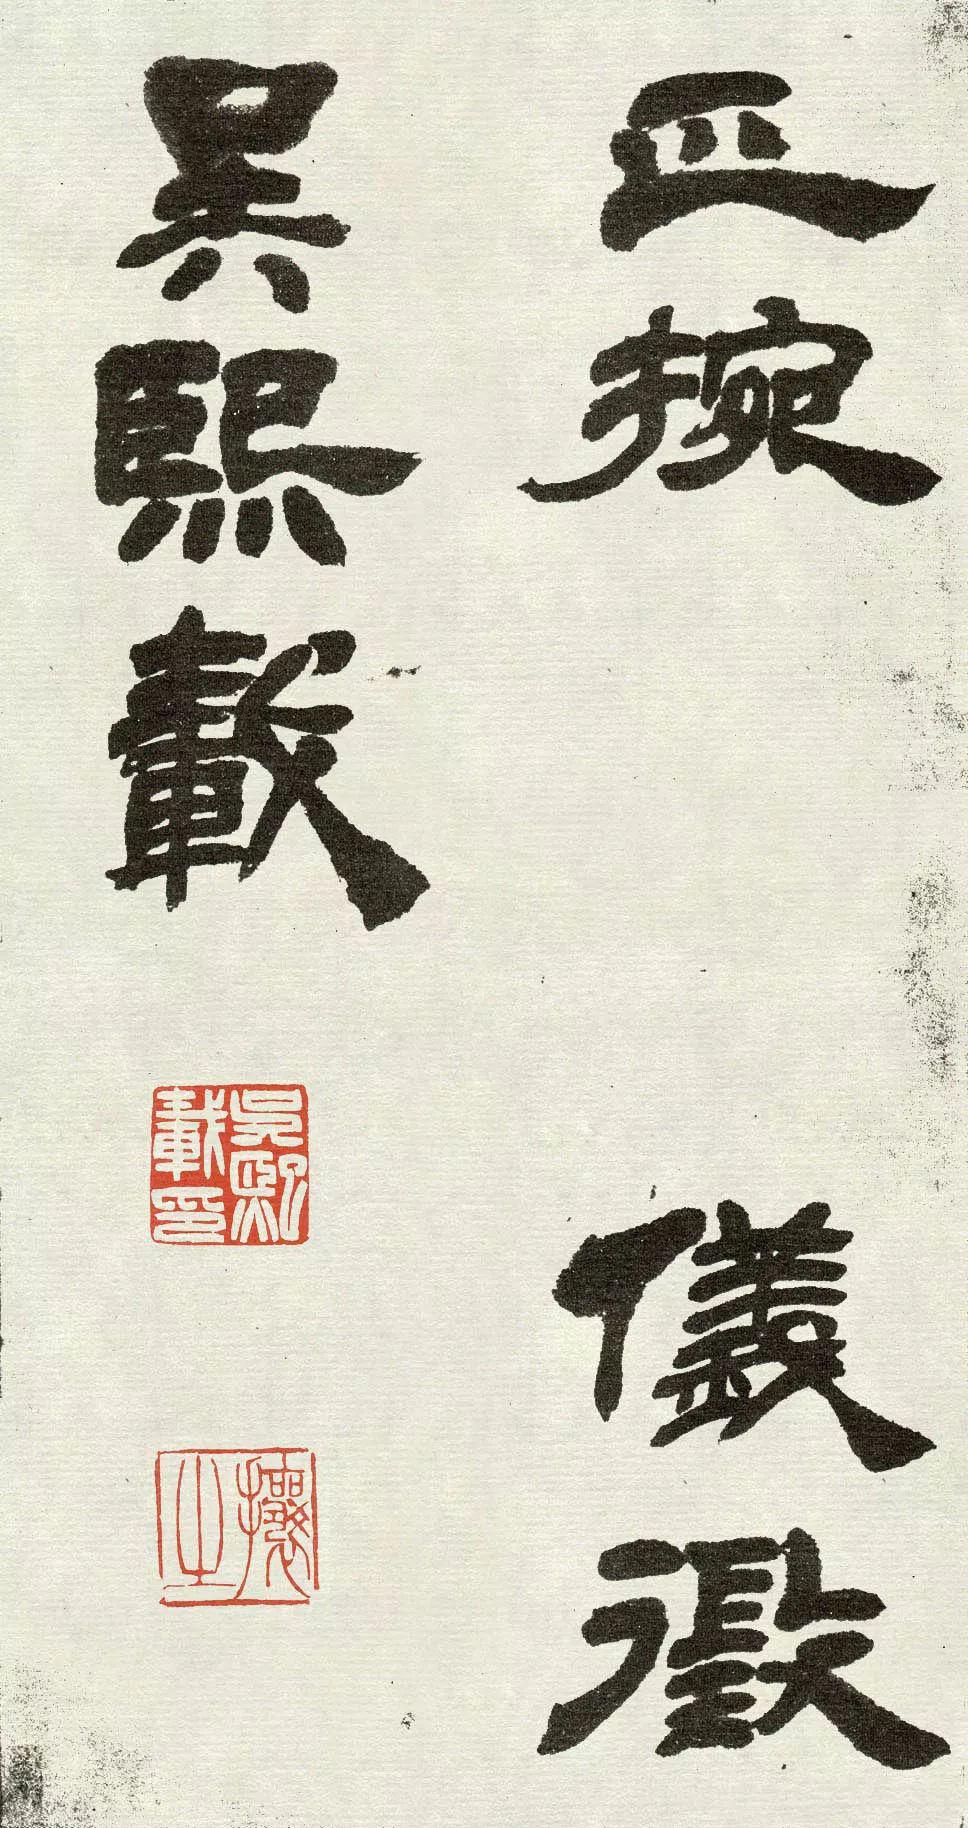 正捥 儀徵
吳熙載
吳熙載印
攘之